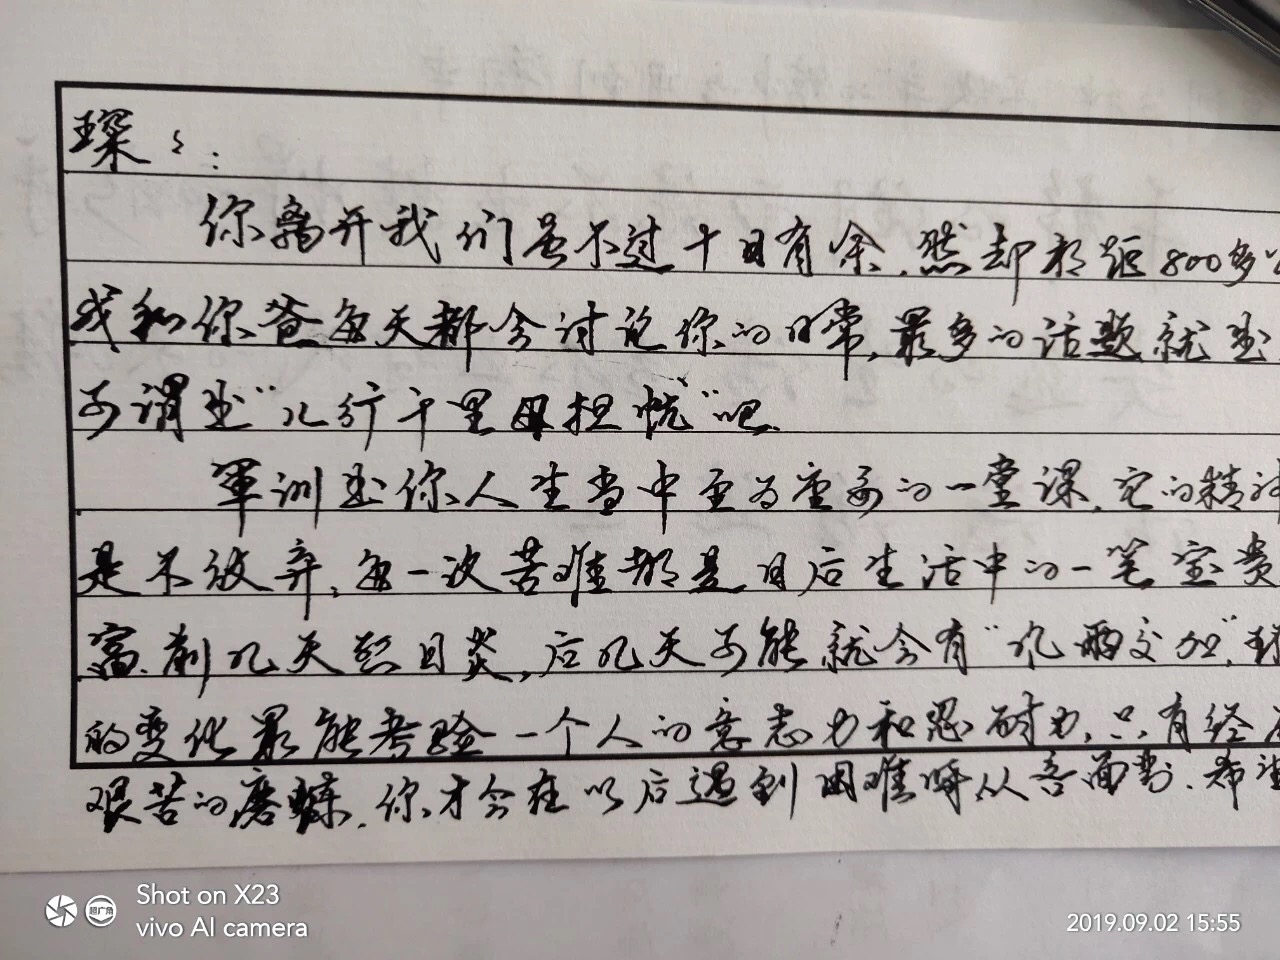 琛々：
你离开我们虽不过十日有余,然却相距800多
我和你爸每天都会讨论你的日常,最多的话题就是
可谓是“儿行千里母担忧”吧.
军训是你人生当中至为重要的一堂课,它的精神
是不放弃,每一次苦难都是日后生活中的一笔宝贵
富.前几天烈日炎,后几天可能就会有“风雨交加”,
的变化最能考验一个人的意志力和忍耐力,只有经
艰苦的磨炼,你才会在以后遇到困难时从容面对.希
Shot on X23
vivo AI camera
超广角
2019.09.02 15:55